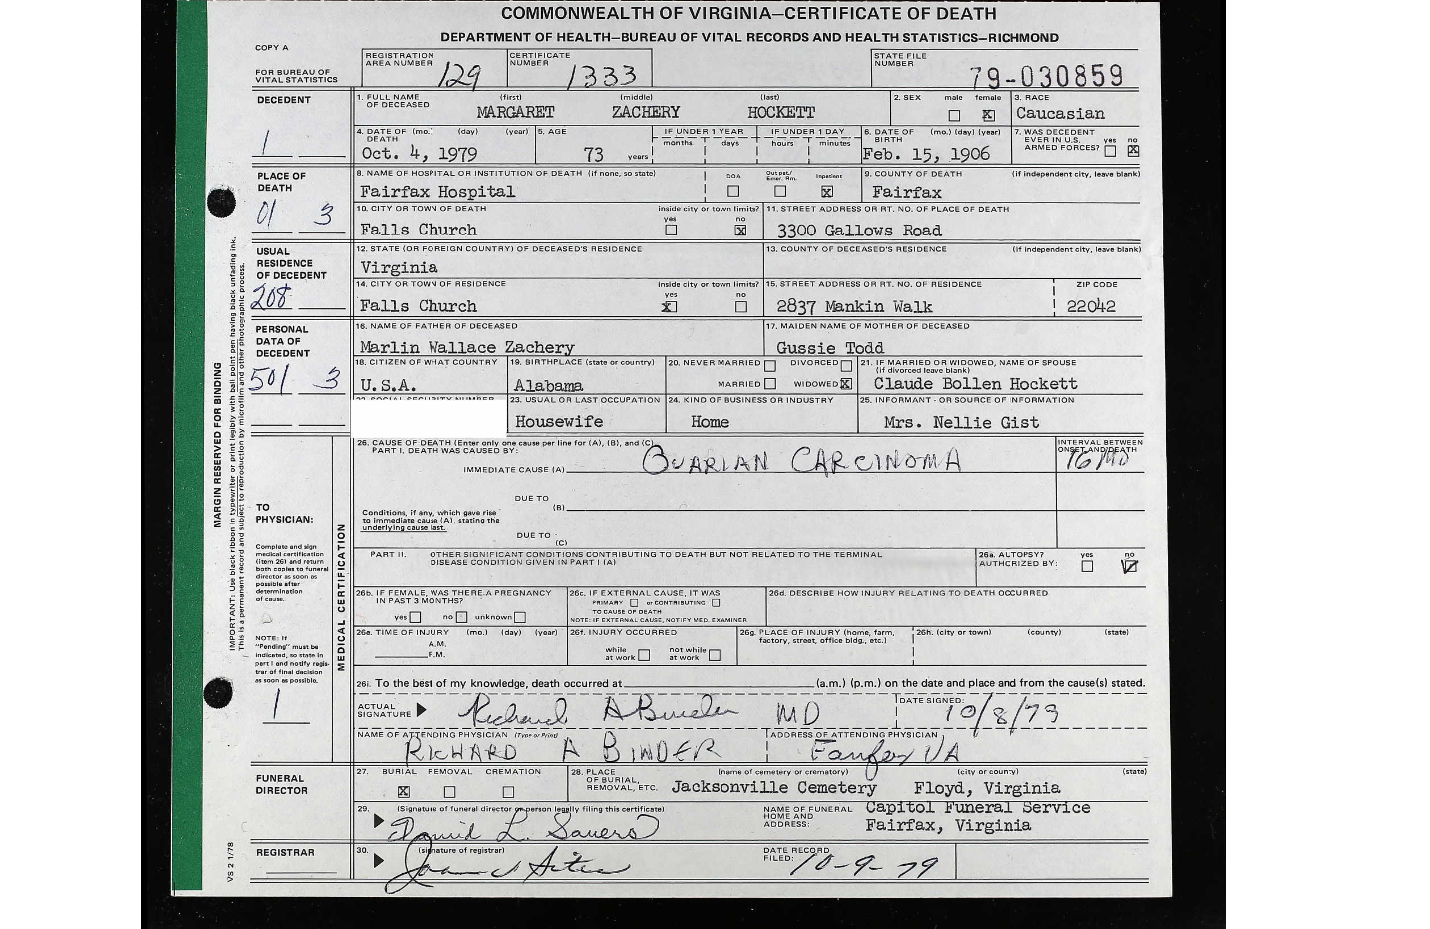 COMMONWEALTH OF VIRGINIA—CERTIFICATE OF DEATH
DEPARTMENT OF HEALTH—BUREAU OF VITAL RECORDS AND HEALTH STATISTICS—RICHMOND
COPY A
FOR BUREAU OF VITAL STATISTICS
REGISTRATION AREA NUMBER 129 CERTIFICATE NUMBER 1333 STATE FILE NUMBER 79-030859
DECEDENT
1
1. FULL NAME OF DECEASED (first) (middle) (last) 2. SEX male female 3. RACE
MARGARET ZACHERY HOCKETT X Caucasian
4. DATE OF DEATH (mo.) (day) (year) 5. AGE IF UNDER 1 YEAR months days IF UNDER 1 DAY hours minutes 6. DATE OF BIRTH (mo.) (day) (year) 7. WAS DECEDENT EVER IN U.S. ARMED FORCES? yes no
Oct. 4, 1979 73 years Feb. 15, 1906 X
PLACE OF DEATH
01 3
8. NAME OF HOSPITAL OR INSTITUTION OF DEATH (if none, so state) DOA Outpat./Emer. Rm. Inpatient 9. COUNTY OF DEATH (if independent city, leave blank)
Fairfax Hospital X Fairfax
10. CITY OR TOWN OF DEATH inside city or town limits? yes no 11. STREET ADDRESS OR RT. NO. OF PLACE OF DEATH
Falls Church X 3300 Gallows Road
USUAL RESIDENCE OF DECEDENT
208
12. STATE (OR FOREIGN COUNTRY) OF DECEASED'S RESIDENCE 13. COUNTY OF DECEASED'S RESIDENCE (if independent city, leave blank)
Virginia
14. CITY OR TOWN OF RESIDENCE inside city or town limits? yes no 15. STREET ADDRESS OR RT. NO. OF RESIDENCE ZIP CODE
Falls Church X 2837 Mankin Walk 22042
PERSONAL DATA OF DECEDENT
501 3
16. NAME OF FATHER OF DECEASED 17. MAIDEN NAME OF MOTHER OF DECEASED
Marlin Wallace Zachery Gussie Todd
18. CITIZEN OF WHAT COUNTRY 19. BIRTHPLACE (state or country) 20. NEVER MARRIED DIVORCED MARRIED WIDOWED X 21. IF MARRIED OR WIDOWED, NAME OF SPOUSE (if divorced leave blank)
U.S.A. Alabama Claude Bollen Hockett
22. SOCIAL SECURITY NUMBER 23. USUAL OR LAST OCCUPATION 24. KIND OF BUSINESS OR INDUSTRY 25. INFORMANT - OR SOURCE OF INFORMATION
Housewife Home Mrs. Nellie Gist
MARGIN RESERVED FOR BINDING
IMPORTANT: Use black ribbon in typewriter or print legibly with ball point pen having black unfading ink.
This is a permanent record and subject to reproduction by microfilm and other photographic process.
TO PHYSICIAN:
Complete and sign
medical certification
(item 26) and return
both copies to funeral
director as soon as
possible after
determination
of cause.
NOTE: If
"Pending" must be
indicated, so state in
part I and notify regis-
trar of final decision
as soon as possible.
1
MEDICAL CERTIFICATION
26. CAUSE OF DEATH (Enter only one cause per line for (A), (B), and (C)
PART I. DEATH WAS CAUSED BY: INTERVAL BETWEEN ONSET AND DEATH
IMMEDIATE CAUSE (A) OVARIAN CARCINOMA 16 MO
DUE TO (B)
Conditions, if any, which gave rise
to immediate cause (A), stating the
underlying cause last.
DUE TO (C)
PART II. OTHER SIGNIFICANT CONDITIONS CONTRIBUTING TO DEATH BUT NOT RELATED TO THE TERMINAL DISEASE CONDITION GIVEN IN PART I (A) 26a. AUTOPSY? AUTHORIZED BY: yes no
26b. IF FEMALE, WAS THERE A PREGNANCY IN PAST 3 MONTHS? yes no unknown
26c. IF EXTERNAL CAUSE, IT WAS PRIMARY or CONTRIBUTING TO CAUSE OF DEATH
NOTE: IF EXTERNAL CAUSE, NOTIFY MED. EXAMINER
26d. DESCRIBE HOW INJURY RELATING TO DEATH OCCURRED
26e. TIME OF INJURY (mo.) (day) (year) A.M. P.M. 26f. INJURY OCCURRED while at work not while at work 26g. PLACE OF INJURY (home, farm, factory, street, office bldg., etc.) 26h. (city or town) (county) (state)
26i. To the best of my knowledge, death occurred at (a.m.) (p.m.) on the date and place and from the cause(s) stated.
ACTUAL SIGNATURE Richard A Binder MD DATE SIGNED: 10/8/79
NAME OF ATTENDING PHYSICIAN (Type or Print) ADDRESS OF ATTENDING PHYSICIAN
RICHARD A BINDER Fairfax VA
FUNERAL DIRECTOR
27. BURIAL REMOVAL CREMATION 28. PLACE OF BURIAL, REMOVAL, ETC. (name of cemetery or crematory) (city or county) (state)
X Jacksonville Cemetery Floyd, Virginia
29. (Signature of funeral director or person legally filing this certificate) NAME OF FUNERAL HOME AND ADDRESS: Capitol Funeral Service
David L. Sauers Fairfax, Virginia
REGISTRAR
30. (signature of registrar) DATE RECORD FILED: 10-9-79
VS 2 1/78